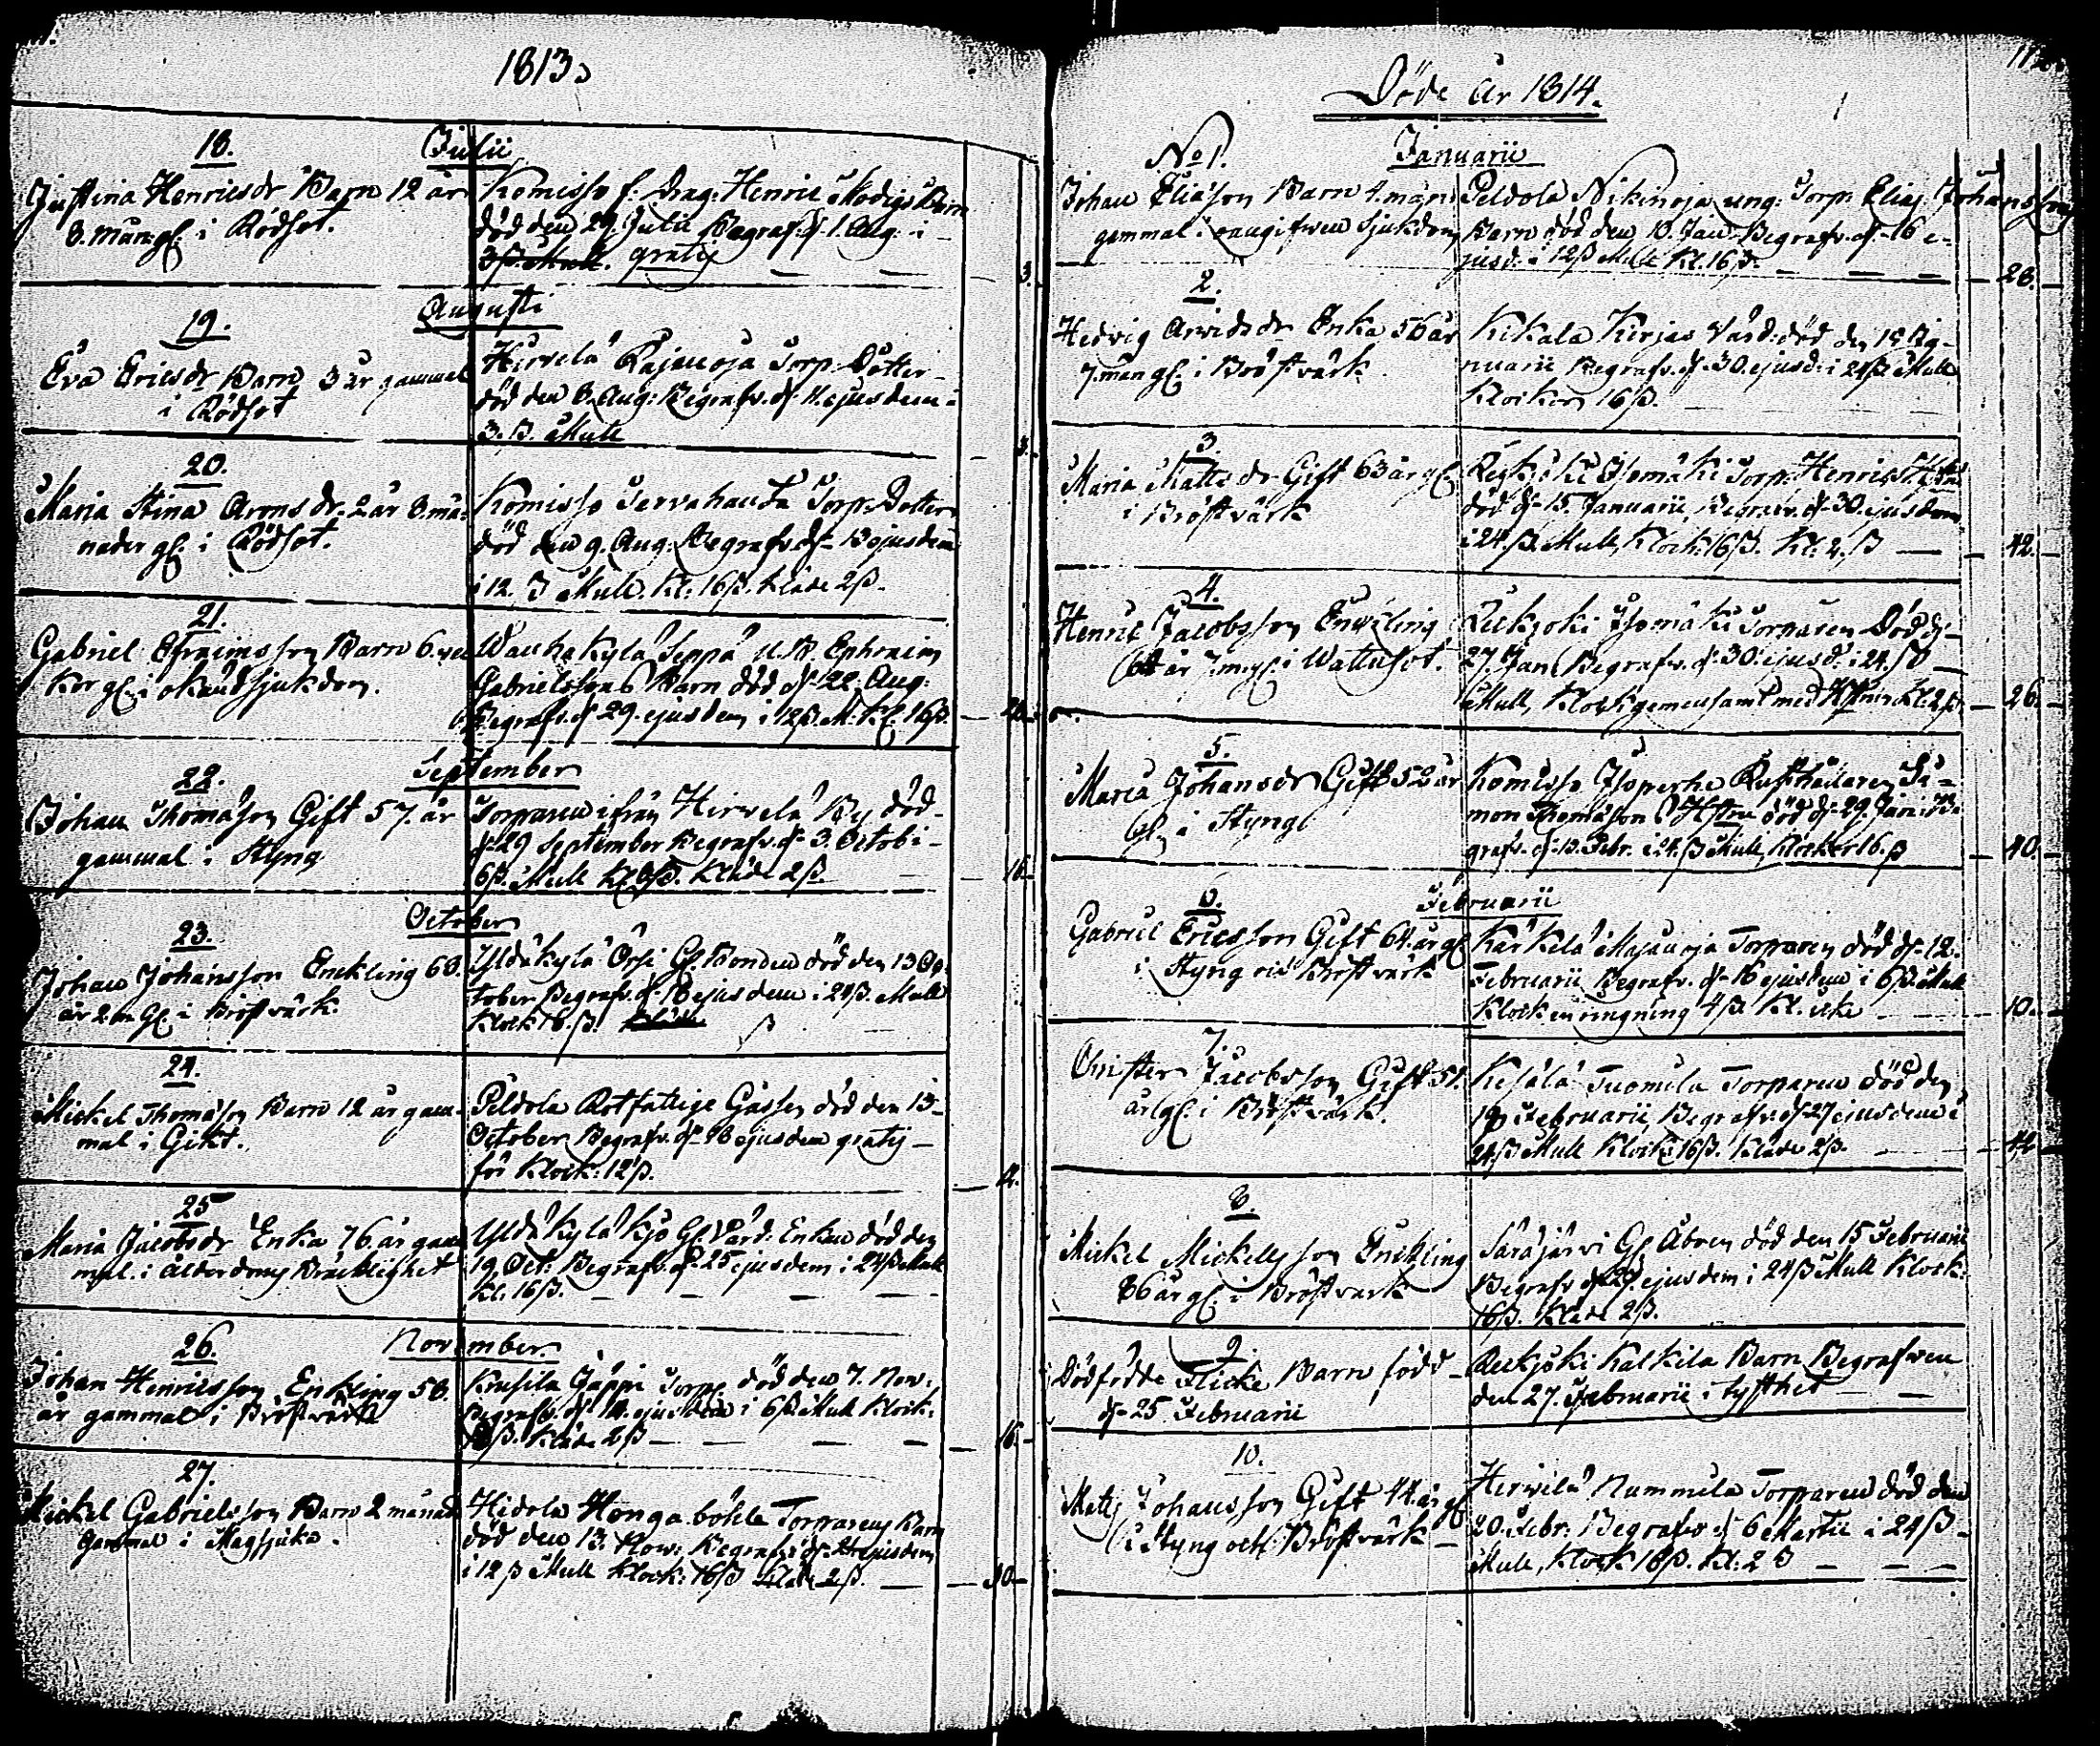 1813.
18.
Julii
Justina Henricsdr Barn 12 år
8. mån: gl. i Rödsot.
Komisso f. Drag. Henric Modigs Barn
död den 29. Julii Begraf. d. 1. Aug. i
3 ß. Mull. gratis
3.
Augusti
19.
Eva Ericsdr Barn 3 år gammal
i Rödsot
Hirvelä Rajanoja Torp. Dotter
död den 8. Aug: Begrafv. d. 11. ejusdem i
3. ß. Mull
3.
20.
Maria Stina Aronsdr. 2 år 8 må-
nader gl. i Rödsot.
Komisso Torp. Dotter
död den 9. Aug. Begrafv. d. 13 ejusdem
i 12. ß Mull. Kl. 16 ß. Kläde 2 ß.
21.
Gabriel Efraimsson Barn 6. vec
kor gl. i okänd sjukdom.
Wauhakylä Seppä Ephraim
Gabrielssons Barn död d. 22. Aug.
Begrafv. d. 29. ejusdem i 12 ß. M. Kl. 16 ß.
September
22.
Johan Thomason Gift 57. år
gammal i Styng
Torparen ifrån Hirvelä By död
d. 29 September Begrafv. d. 3. Octob i
6 ß. Mull Kl. 8 ß. Kläde 2 ß.
16.
October
23.
Johan Johansson Enckling 68.
år 2. m. gl. i Bröstvärk.
Yldäkylä Örsi Gl. Bonden död den 13 Oc-
tober Begrafv. d. 18 ejusdem i 24 ß. Mull
Klock 16. ß.
24.
Mickel Thomason Barn 12 år gam-
mal i Gikt.
Peldola Rotfattige Gåssen död den 13
October Begrafv. d. 18 ejusdem gratis
för Klock: 12 ß.
12.
25
Maria Jacobsdr Enka 76 år gam
mal. i Ålderdoms Bräcklighet
Yldäkylä Kjö Gl. Värd: Enkan död den
19. Oct: Begrafv. d. 25 ejusdem i 24 ß Mull
Kl. 16 ß.
November.
26.
Johan Henricsson Enkling 58.
år gammal i Bröstvärk
Krusila Jäppi Torp. död den 7. Nov.
Begrafv. d. 14. ejusdem i 6 ß Mull Klock.
8 ß. Kläde 2 ß
16.
27.
Mickel Gabrielsson Barn 2 månad
gammal i Magsjuka.
Hidola Hongaböhle Torparens Barn
död den 13. Nov. Begrafv. d. ejusdem
i 12 ß Mull Klock: 16 ß Kläde 2 ß.
30
Döde år 1814.
No 1.
Januarii
Johan Eliason Barn 4. mån:
gammal i oangifwen sjukdom
Peldola Nikinoja ung: Torp. Elias Johansson
Barn död den 10. Jan. Begrafv. d. 16 e-
jusd. i 12 ß Mull Kl. 16 ß.
28.
2.
Hedvig Arvidsdr Enka 56 år
7. mån gl. i Bröstvärk
Kikala Kirjas Värd: död den 15 Ja-
nuarii Begrafv. d. 30. ejusd: i 24 ß Mull
Klockor 16 ß.
3.
Maria Mattsdr Gift 63 år gl.
i Bröstvärk
Reckjoki Isomäki Torp. Henrics Hstru
död d. 15. Januarii, Begrafv. d. 30. ejusdem
i 24. ß. Mull, Klock: 16 ß. Kl. 2. ß
42.
4.
Henric Jacobsson Enckling
64 år 7. m. gl. i Wattusot.
Reckjoki Isomäki Torparen Död d.
27. Jan. Begrafv. d. 30. ejusd. i 24. ß
Mull, Klock gemensamt med Hstrun Kl. 2 ß
26.
5.
Maria Johansdr Gift 52 år
gl. i Styng
Komisso Isoperhe Rusthållaren Si-
mon Thomason Hstru död d. 29. Jan: Be-
grafv. d. 13. Febr. i 24. ß Mull, Klockor 16. ß
40.
Februarii
6.
Gabriel Ericsson Gift 64. år gl.
i Styng och Bröstvärk
Kärkelä Majanoja Torparen död d. 12.
Februarii, Begrafv. d. 16 ejusdem i 6 ß. Mull
Klock en ringning 4 ß Kl. icke
10.
7.
Christer Jacobsson Gift 51.
år gl. i Bröstvärk.
Kesälä Tuomila Torparen död den
19 Februarii, Begrafv. d. 27 ejusdem i
24. ß Mull Klock. 16 ß. Kläde 2 ß.
42
8.
Mickel Mickelsson Enckling
66 år gl. i Bröstvärk
Sarajärvi Gl. Åboen död den 15 Februarii
Begrafv. d. 27. ejusdem i 24 ß Mull Klock:
16 ß. Kläde 2 ß.
9.
Dödfödde Flicke Barn född
d. 25 Februarii
Reckjoki Kalkila Barn Begrafven
den 27. Februarii i tysthet
10.
Mats Johansson Gift 44. år gl
i Styng och Bröstvärk
Hirwilä Nummila Torparen död den
20. Febr. Begrafv. d. 6 Martii i 24 ß
Mull, Klock 16 ß. Kl. 2 ß